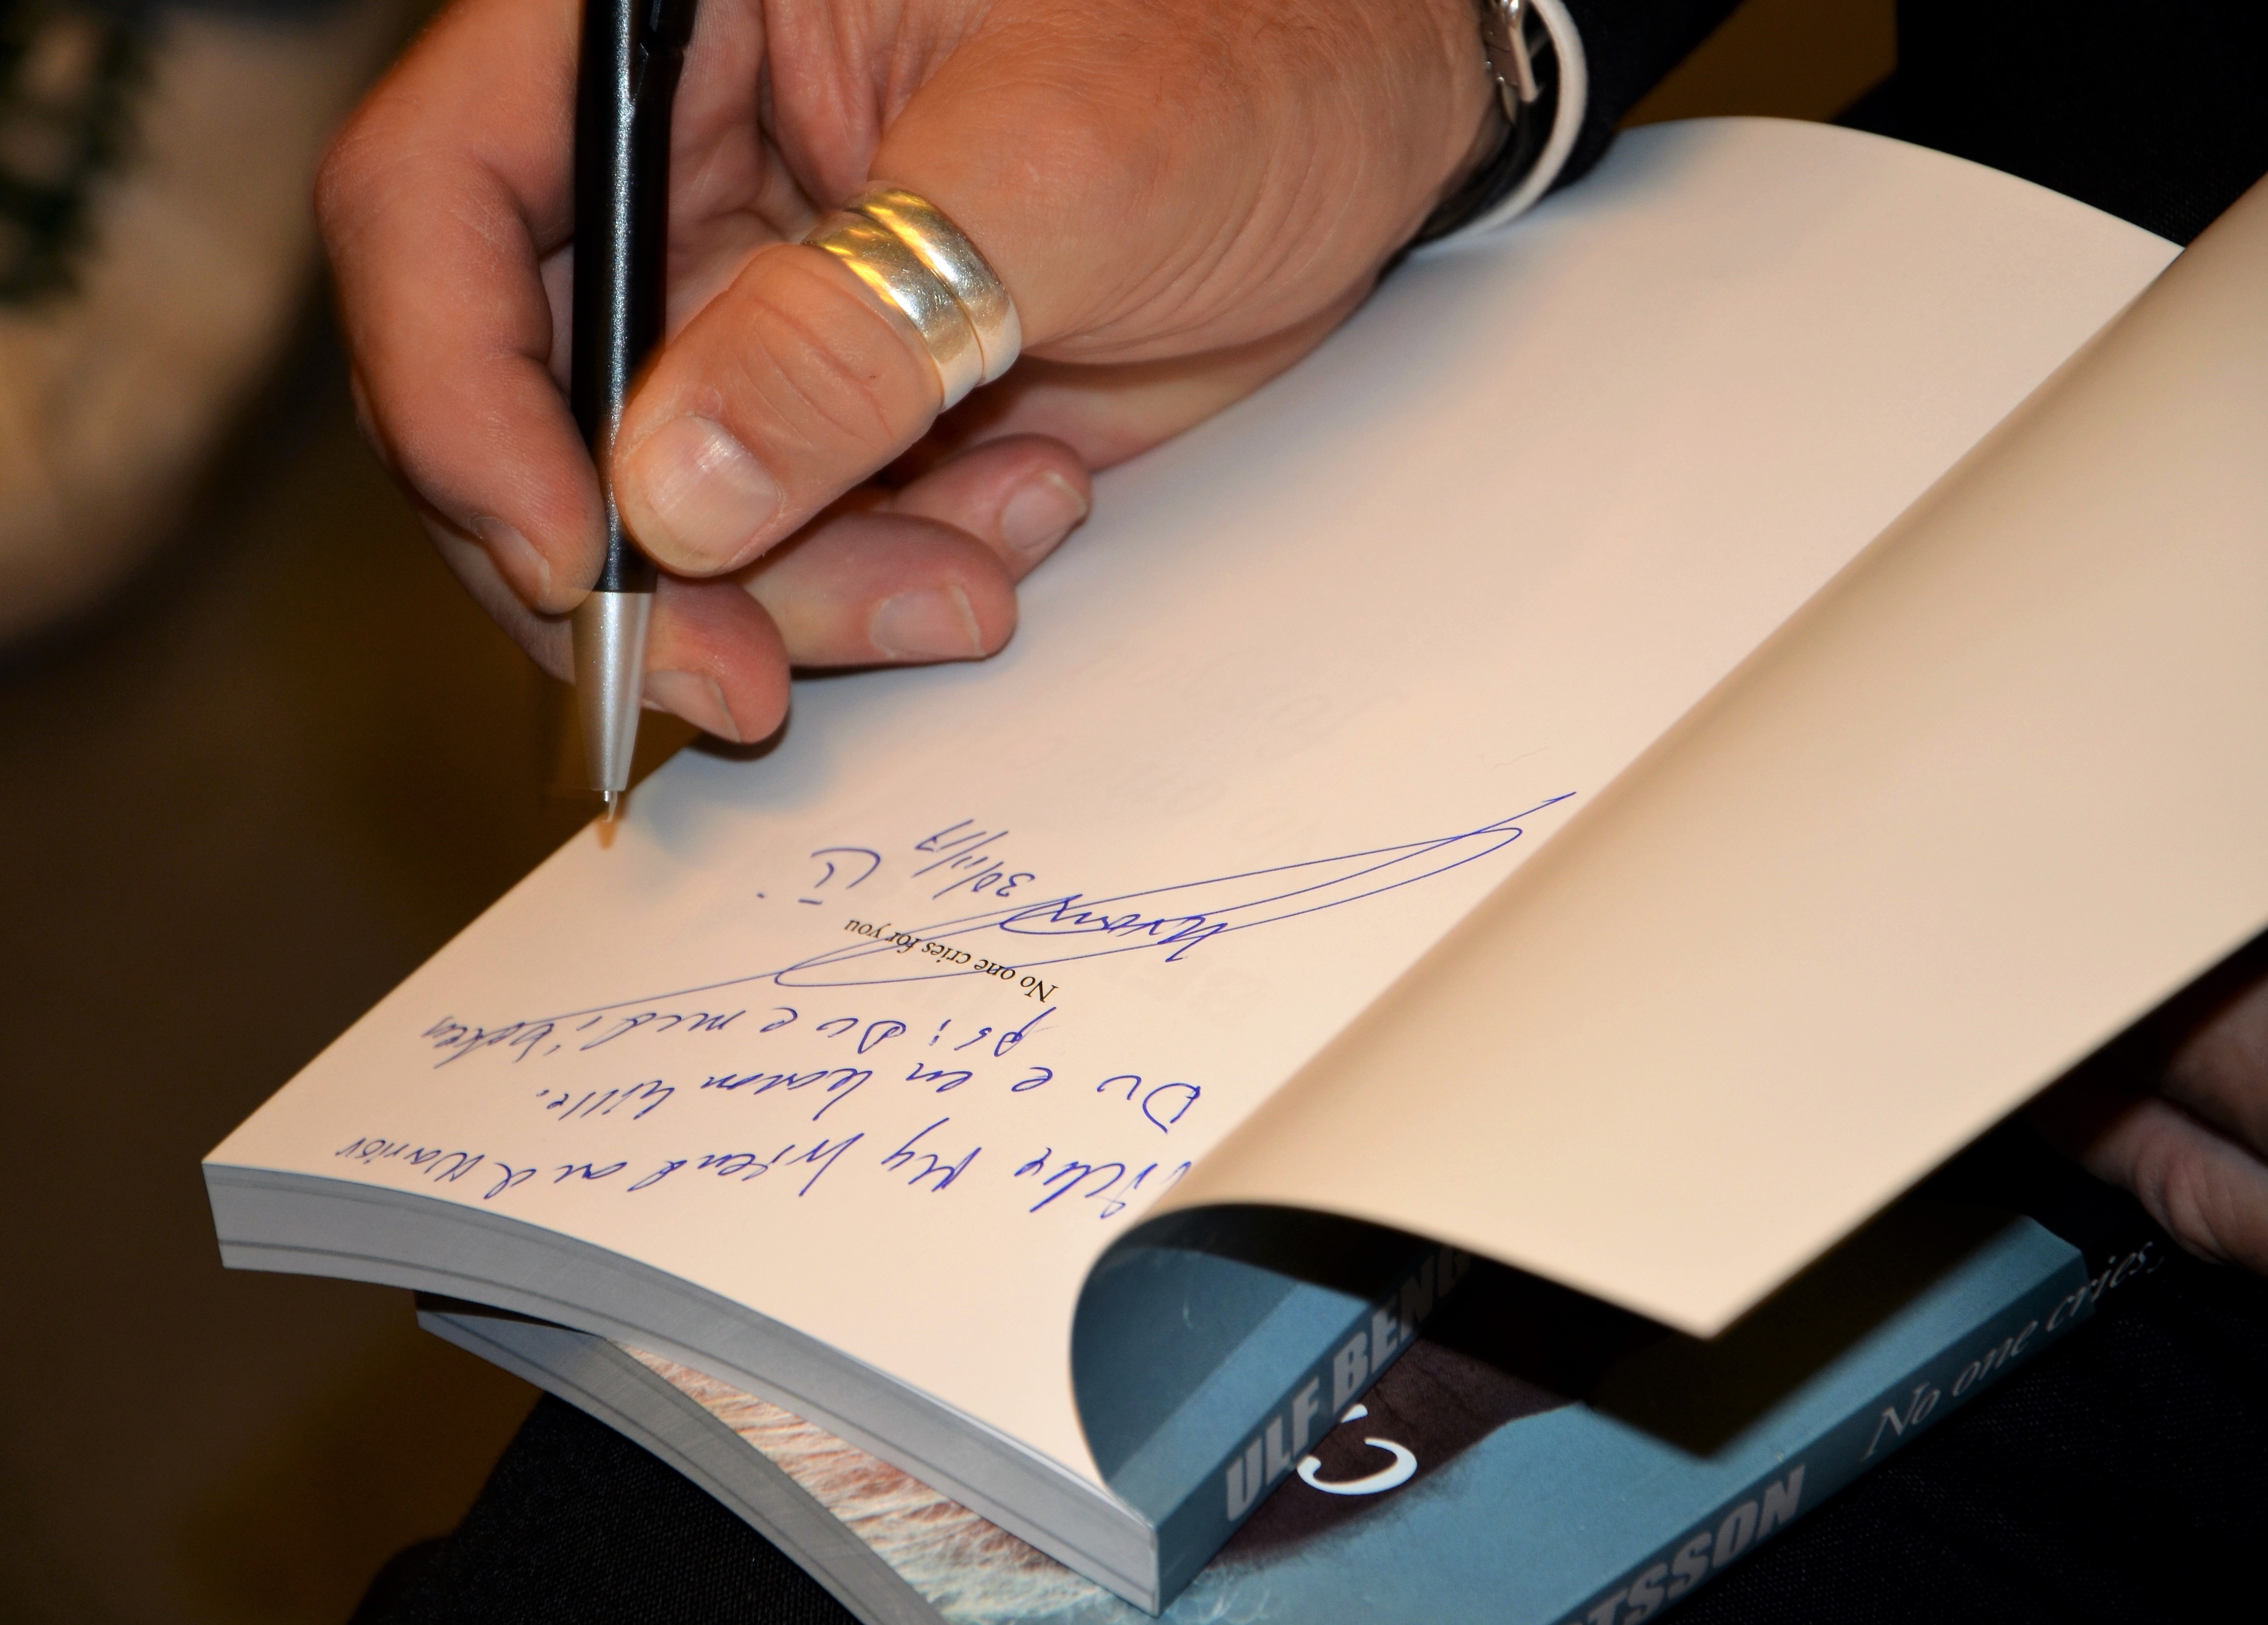 My friend and Warrior
Du e en
ps; Du e med i boken
No one cries for you
30/11/17
ULF BENG
TSSON
No one cries,